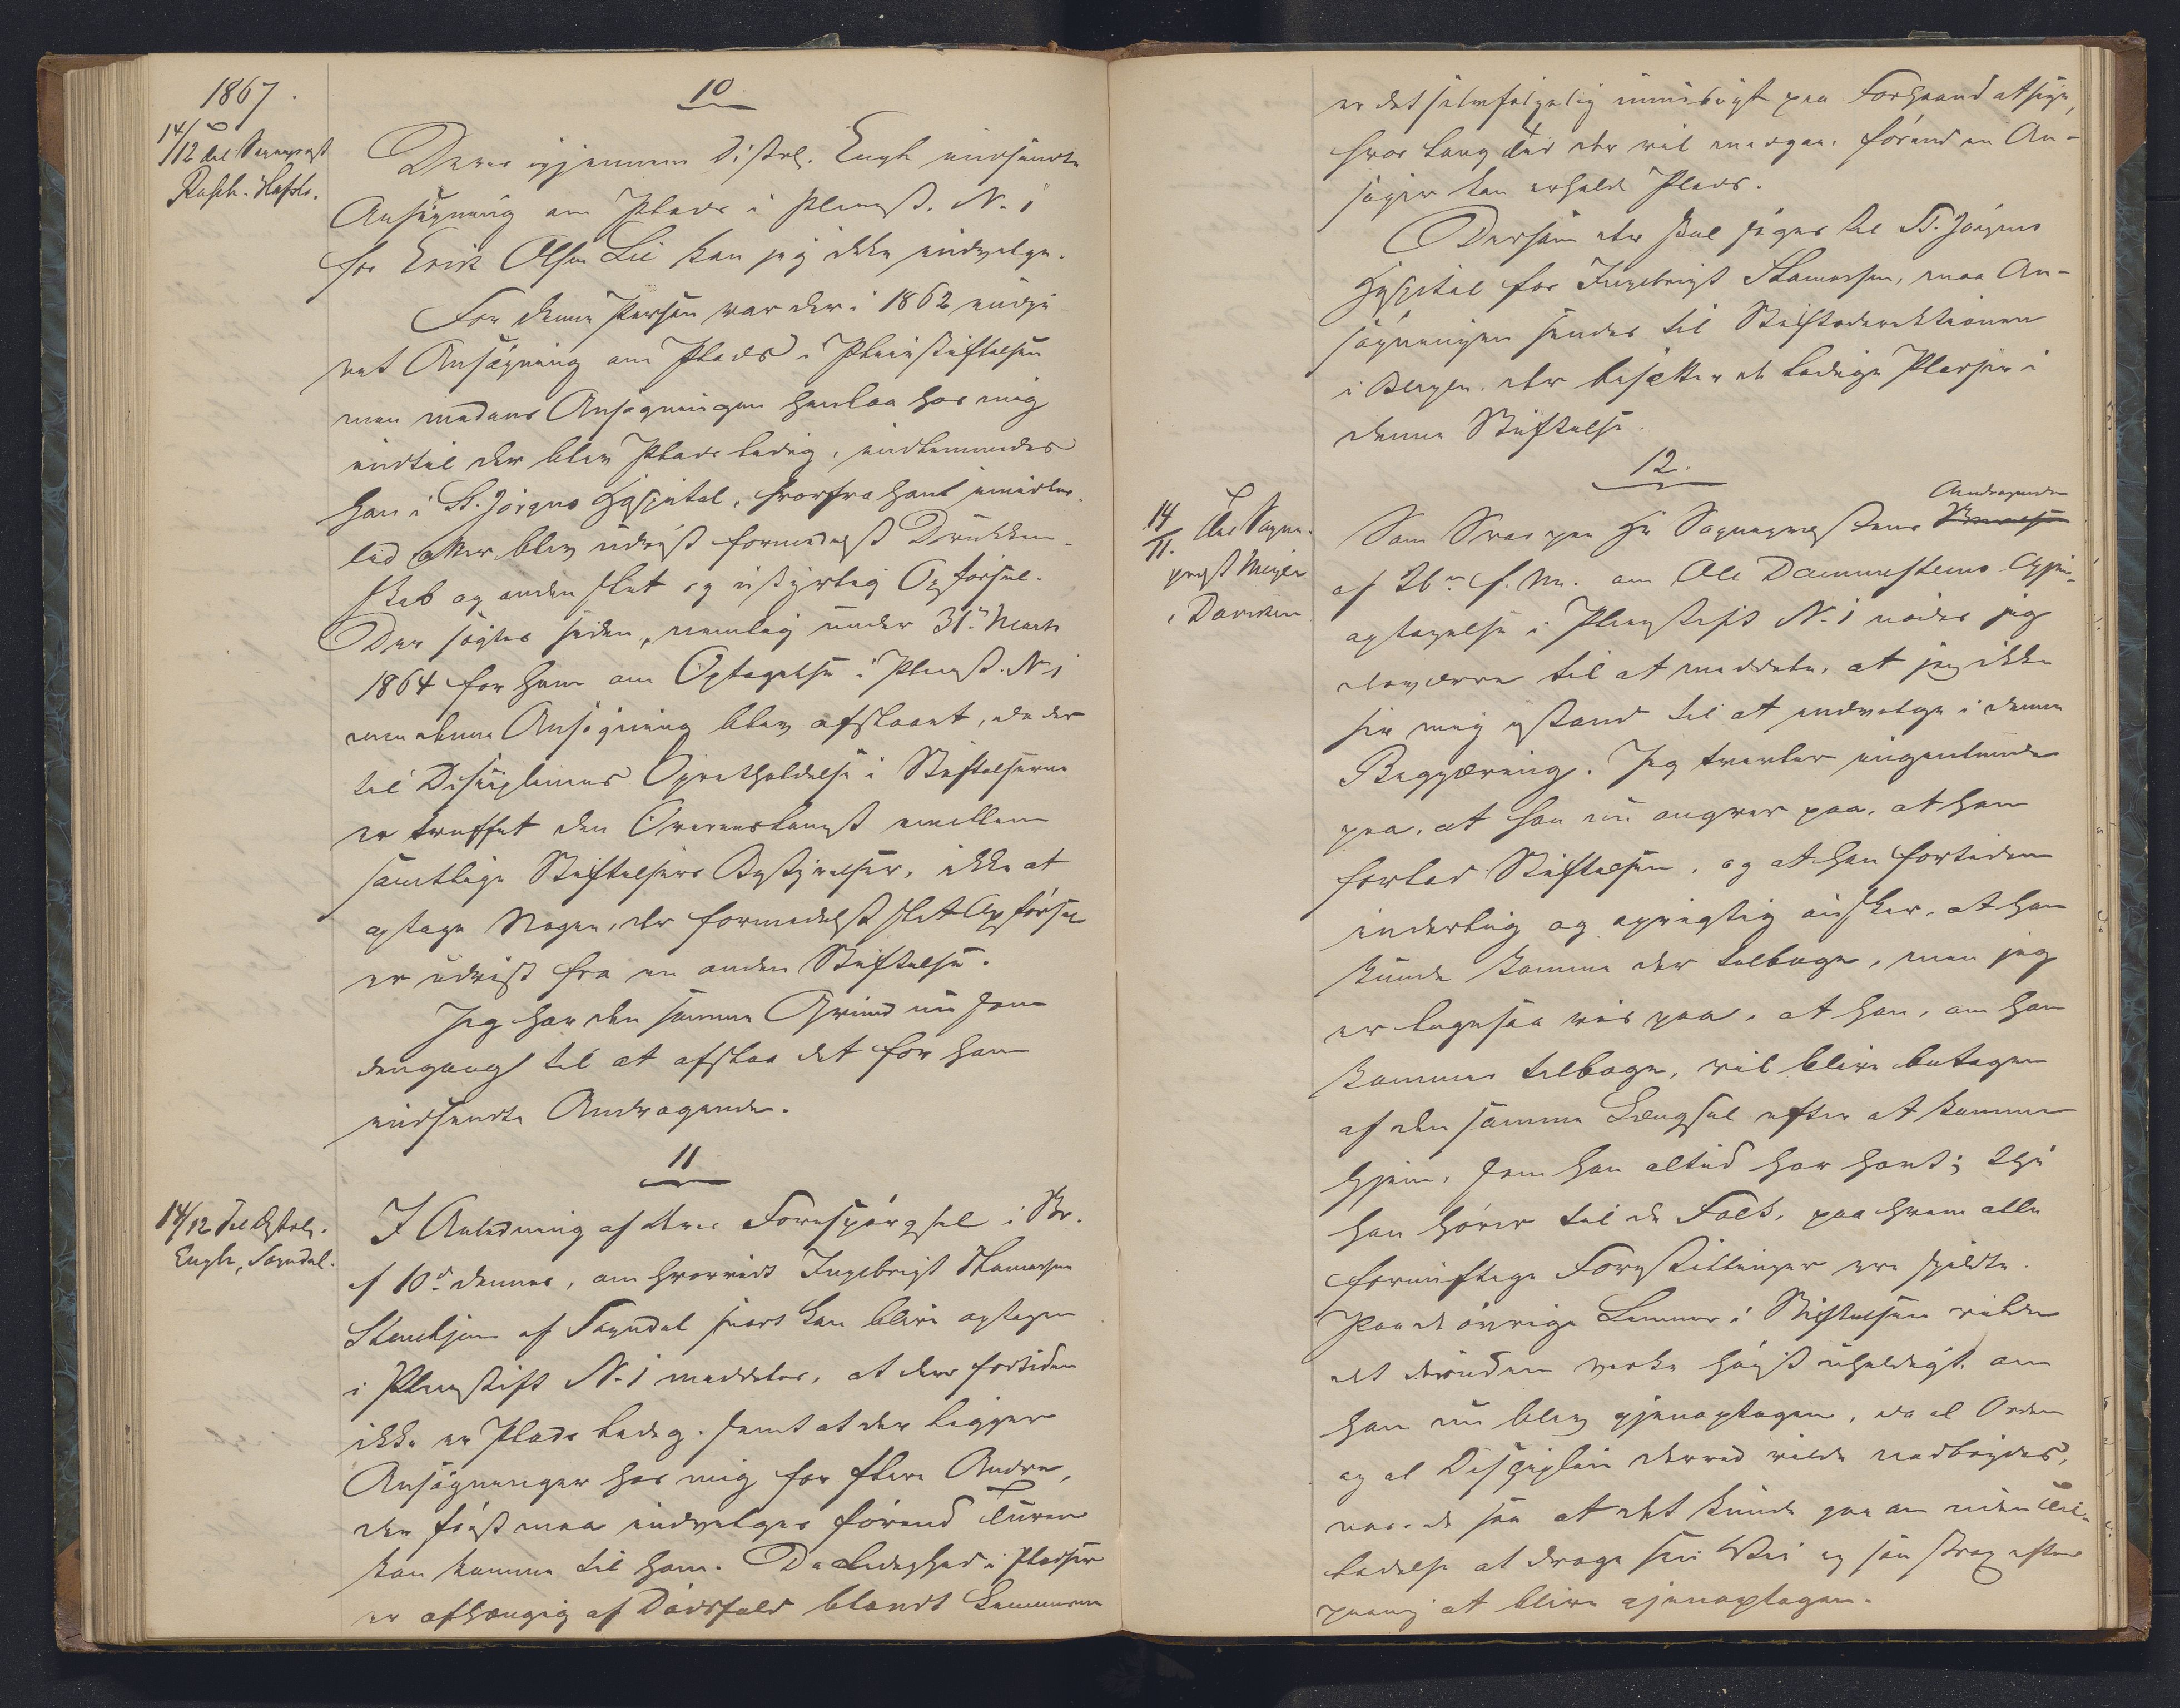 1867.
14/12 til Sogneprest
Rasch. Hafslo.
10
Deres igjennem Distrl. Engh indsendte
Ansøgning om Plads i Pleiest. N. 1
for Erik Olsen Lie kan jeg ikke indvilge.
For denne Person var der i 1862 indgi
vet Ansøgning om Plads i Pleiestiftelsen
men medens Ansøgningen henlaa hos mig
indtil der blev Plads ledig, indkom
han i St. Jørgens Hospital, hvorfra han imidler
tid atter blev udvist formedelst Drukken-
skab og anden slet og ustyrlig Opførsel.
Der søgtes siden, nemlig under 31te Marts
1864 for ham om Optagelse i Pleiest. N. 1
men denne Ansøgning blev afslaaet, da der
til Disciplinens Opretholdelse i Stiftelserne
er truffet den Overenskomst mellem
samtlige Stiftelsers Bestyrelser, ikke at
optage Nogen, der formedelst slet Opførsel
er udvist fra en anden Stiftelse.
Jeg har den samme Grund nu som
dengang til at afslaa det for ham
indsendte Andragende.
11
14/12 Til Distrl.
Engh, Sogndal.
I Anledning af Deres Forespørgsel i Br.
af 10de dennes, om hvorvidt Ingebrigt
af Sogndal snart kan blive optagen
i Pleiestift N. 1 meddeles, at der fortiden
ikke er Plads ledig, samt at der ligger
Ansøgninger hos mig for flere Andre,
der først maa indvilges førend Turen
kan komme til ham. Da Ledighed i Pladser
er afhængig af Dødsfald blandt Lemmerne
er det selvfølgelig umuligt paa Forhaand at sige,
hvor lang Tid der vil medgaa, førend en An-
søger kan erholde Plads.
Dersom der skal søges til St. Jørgens
Hospital for Ingebrigt, maa An-
søgningen sendes til Stiftsdirektionen
i Bergen, der besætter de ledige Pladser i
denne Stiftelse.
12.
14/11. Til Sogne-
prest Meyer
i Daviken
Som Svar paa Hr Sogneprestens Andragende
af 26de f. M. om Ole Dammesteens Gjen-
optagelse i Pleiestift N. 1 nødes jeg
desværre til at meddele, at jeg ikke
ser mig istand til at indvilge i denne
Begjæring. Jeg tvivler ingenlunde
paa, at han nu angrer paa, at han
forlod Stiftelsen, og at han fortiden
inderlig og oprigtig ønsker, at han
kunde komme der tilbage, men jeg
er ligesaa vis paa, at han, om han
kommer tilbage, vil blive betagen
af den samme Længsel efter at komme
hjem, som han altid har havt; thi
han hører til de Folk, paa hvem alle
fornuftige Forestillinger ere spildte.
Paa de øvrige Lemmer i Stiftelsen vilde
det desuden virke høist uheldigt, om
han nu blev gjenoptagen, da al Orden
og al Disciplin derved vilde nedbrydes,
naar de saa at det kunde gaa an uden Til-
ladelse at drage sin Vei og saa strax efter
paany at blive gjenoptagen.